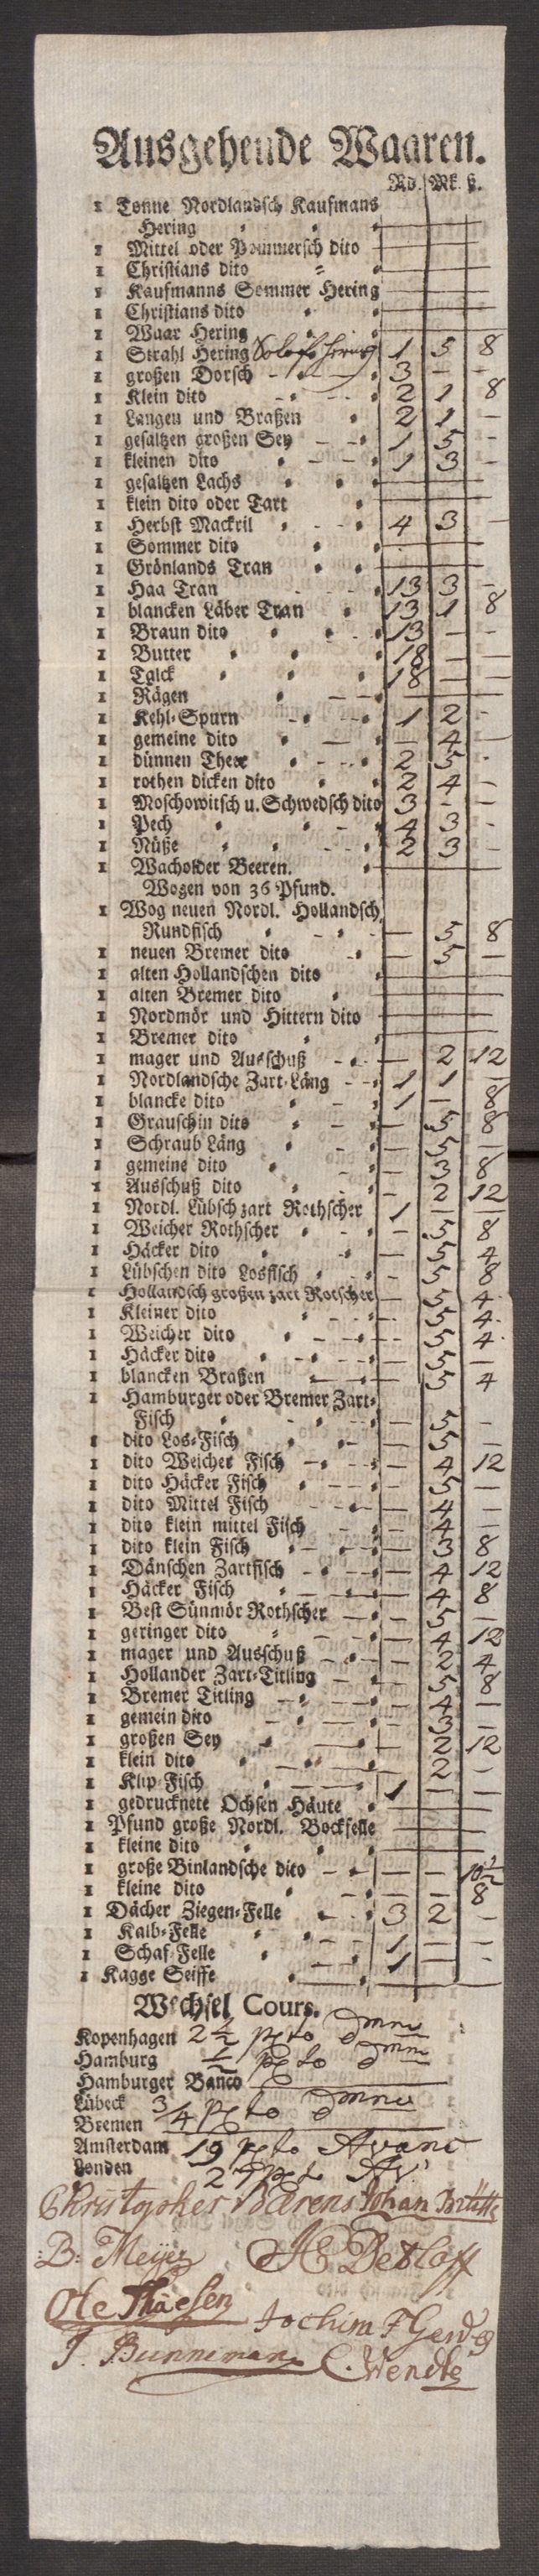 Ausgehende Waaren.
Rd. Mk. ß.
1 Tonne Nordlandsch Kaufmans
Hering
1 Mittel oder Pommersch dito
1 Christians dito
1 Kaufmanns Sommer Hering
1 Christians dito
1 Waar Hering
1 Strahl Hering 1 5 8
1 großen Dorsch 3 — —
1 Klein dito 2 1 8
1 Langen und Braßen 2 1 —
1 gesaltzen großen Sey 1 5 —
1 kleinen dito 1 3 —
1 gesaltzen Lachs
1 klein dito oder Tart
1 Herbst Mackril 4 3 —
1 Sommer dito
1 Grönlands Tran
1 Haa Tran 13 3 —
1 blancken Läber Tran 13 1 8
1 Braun dito 13 — —
1 Butter 18 — —
1 Talck 18 — —
1 Rägen
1 Kehl-Spurn 1 2 —
1 gemeine dito — 4 —
1 dünnen Theer 2 5 —
1 rothen dicken dito 2 4 —
1 Moschowitsch u. Schwedsch dito 3 — —
1 Pech 4 3 —
1 Nüße 2 3 —
1 Wacholder Beeren.
Wogen von 36 Pfund.
1 Wog neuen Nordl. Hollandsch
Rundfisch — 5 8
1 neuen Bremer dito — 5 —
1 alten Hollandschen dito
1 alten Bremer dito
1 Nordmör und Hittern dito
1 Bremer dito
1 mager und Ausschuß — 2 12
1 Nordlandsche Zart-Läng 1 1 —
1 blancke dito 1 — 8
1 Grauschin dito — 5 8
1 Schraub Läng — 5 —
1 gemeine dito — 3 8
1 Ausschuß dito — 2 12
1 Nordl. Lübsch zart Rothscher 1 — —
1 Weicher Rothscher — 5 8
1 Häcker dito — 5 4
1 Lübschen dito Losfisch — 5 8
1 Hollandsch großen zart Rotscher — 5 4
1 Kleiner dito — 5 4
1 Weicher dito — 5 4
1 Häcker dito — 5 —
1 blancken Braßen — 5 4
1 Hamburger oder Bremer Zart-
Fisch — 5 —
1 dito Los-Fisch — 5 —
1 dito Weicher Fisch — 4 12
1 dito Häcker Fisch — 5 —
1 dito Mittel Fisch — 4 —
1 dito klein mittel Fisch — 4 —
1 dito klein Fisch — 3 8
1 Dänschen Zartfisch — 4 12
1 Häcker Fisch — 4 8
1 Best Sünmör Rothscher — 5 —
1 geringer dito — 4 12
1 mager und Ausschuß — 2 4
1 Hollander Zart-Titling — 5 8
1 Bremer Titling — 4 —
1 gemein dito — 3 —
1 großen Sey — 2 12
1 klein dito — 2 —
1 Klip Fisch 1 — —
1 gedrucknete Ochsen Häute
1 Pfund große Nordl. Bockfelle
1 kleine dito
1 große Binlandsche dito — — 10½
1 kleine dito — — 8
1 Dächer Ziegen-Felle 3 2 —
1 Kalb-Felle 1 — —
1 Schaf-Felle 1 — —
1 Kagge Seiffe
Wechsel Cours.
Kopenhagen 2½
Hamburg ½
Hamburger Banco
Lübeck
Bremen 3/4
Amsterdam 19
Londen
Christopher Bärens Johan
B: Meyer Detloff
Ole Jochim F Gerdes
J. Bünneman C. Wendte